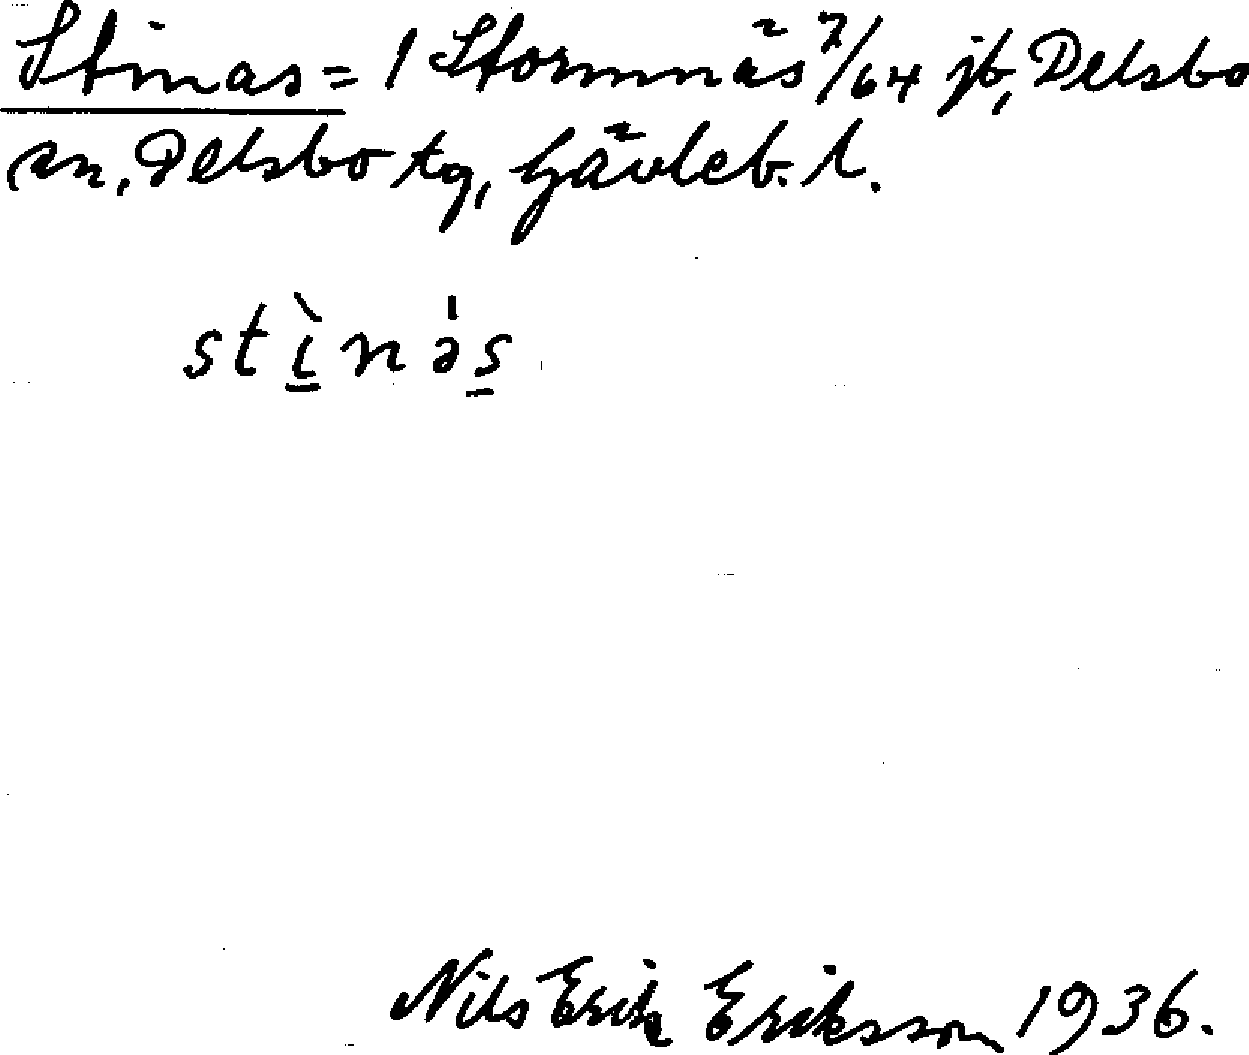 Stinas = 1 Stormnäs 7/64 jb, Delsbo
sn, Delsbo tg, Gävleb. l.
stı̱̀nə̍s̱
Nils Erik Eriksson 1936.